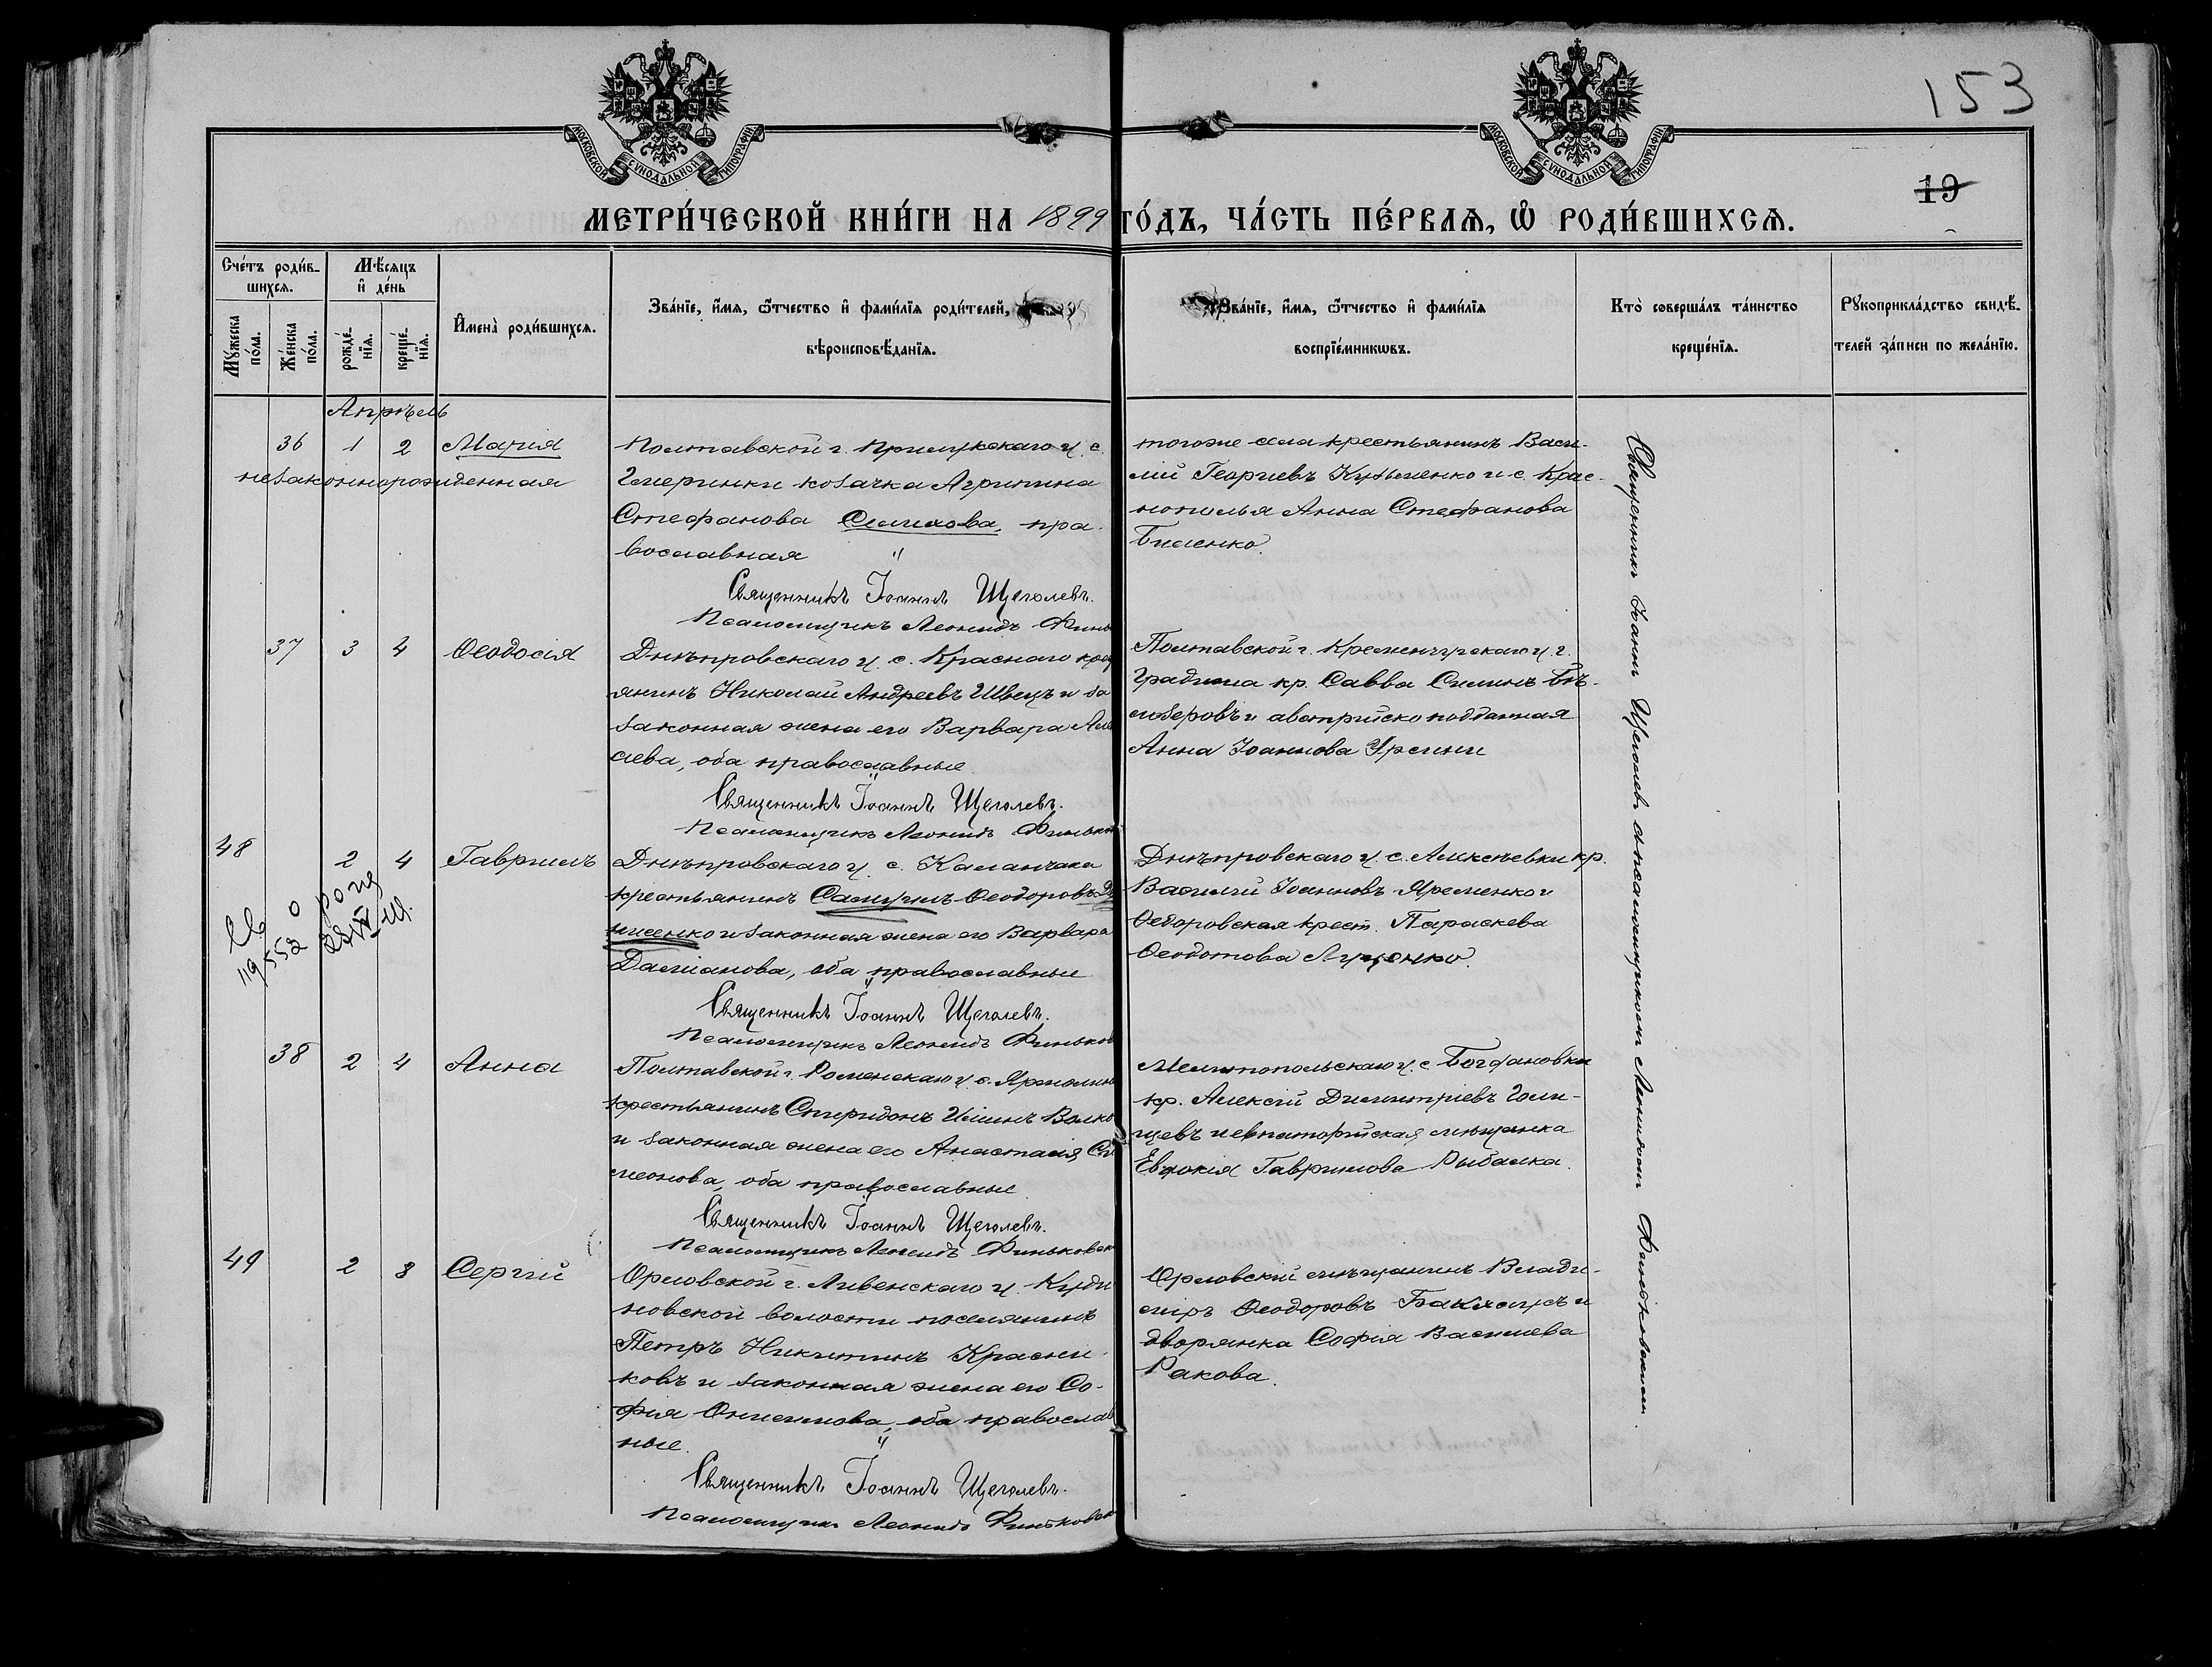 153
МОСКОВСКОЙ СѴНОДАЛЬНОЙ ТИПОГРАФІИ
МОСКОВСКОЙ СѴНОДАЛЬНОЙ ТИПОГРАФІИ
19
МЕТРИ́ЧЕСКОЙ КНИ́ГИ НА 1899 ГО́ДЪ, ЧА́СТЬ ПЕ́РВАѦ, Ѡ҆ РОДИ́ВШИХСѦ.
Сче́тъ роди́в-
шихсѧ.
Мꙋ́жеска
по́ла.
Же́нска
по́ла.
Мѣ́сѧцъ
и҆ де́нь
рожде́-
нїѧ.
креще́-
нїѧ.
И҆мена̀ роди́вшихсѧ.
Зва́нїе, и҆́мѧ, ѻ҆́тчество и҆ фами́лїѧ роди́телей,
вѣроисповѣ́данїѧ.
Зва́нїе, и҆́мѧ, ѻ҆́тчество и҆ фами́лїѧ
воспрїе́мникѡвъ.
Кто̀ соверша́лъ та́инство
креще́нїѧ.
Рꙋкоприкла́дство свидѣ́-
телей за́писи по жела́нїю.
Апрѣль
36 1 2 Марія
незаконнорожденная
Полтавской г. Прилукскаго у. с.
козачка Агрипина
Стефанова пра-
вославная
Священникъ Іоаннъ Щеголевъ.
Псаломщикъ Леонидъ
тогоже села крестьянинъ Васи-
лій Георгіевъ Кузьменко и с. Крас-
нополья Анна Стефанова
Биленко.
37 3 4 Ѳеодосія
Днѣпровскаго у. с. Краснаго крес
янинъ Николай Андреевъ Швецъ и за
законная жена его Варвара Але
сіева, оба православные
Священникъ Іоаннъ Щеголевъ.
Псаломщикъ Леонидъ
Полтавской г. Кременчугскаго у. г.
Градижа кр. Савва Силинъ Бѣ-
лозеровъ и австрійско подданная
Анна Іоаннова
48 2 4 Гавріилъ
Днѣпровскаго у. с. Каланчака
крестьянинъ Самуилъ Ѳеодоровъ
и законная жена его Варвара
Даміанова, оба православные
Священникъ Іоаннъ Щеголевъ.
Псаломщикъ Леонидъ Финьков
Днѣпровскаго у. с. Алексѣевки кр.
Василій Іоанновъ Яременко и
Ѳедоровская крест. Параскева
Ѳеодотова Луценко.
38 2 4 Анна
Полтавской г. Роменскаго у. с.
крестьянинъ Спиридонъ Ильинъ Волко
и законная жена его Анастасія Си
меонова, оба православные
Священникъ Іоаннъ Щеголевъ.
Псаломщикъ Леонидъ Финьковск
Мелитопольскаго у. с. Богдановки
кр. Алексій Димитріевъ Голи-
цевъ и евпаторійская мѣщанка
Евдокія Гавриилова Рыбалка.
49 2 8 Сергій
Орловской г. Ливенскаго у. Куди
новской волости поселянинъ
Петръ Никитинъ Красни-
ковъ и законная жена его Со-
фія Онисимова, оба православ
ные.
Священникъ Іоаннъ Щеголевъ.
Псаломщикъ Леонидъ Финьковск
Орловскій мѣщанинъ Влади-
міръ Ѳеодоровъ и
дворянка Софія Василиева
Ракова.
Священникъ Іоаннъ Щеголевъ съ псаломщикомъ Леонидомъ Финьковскимъ.